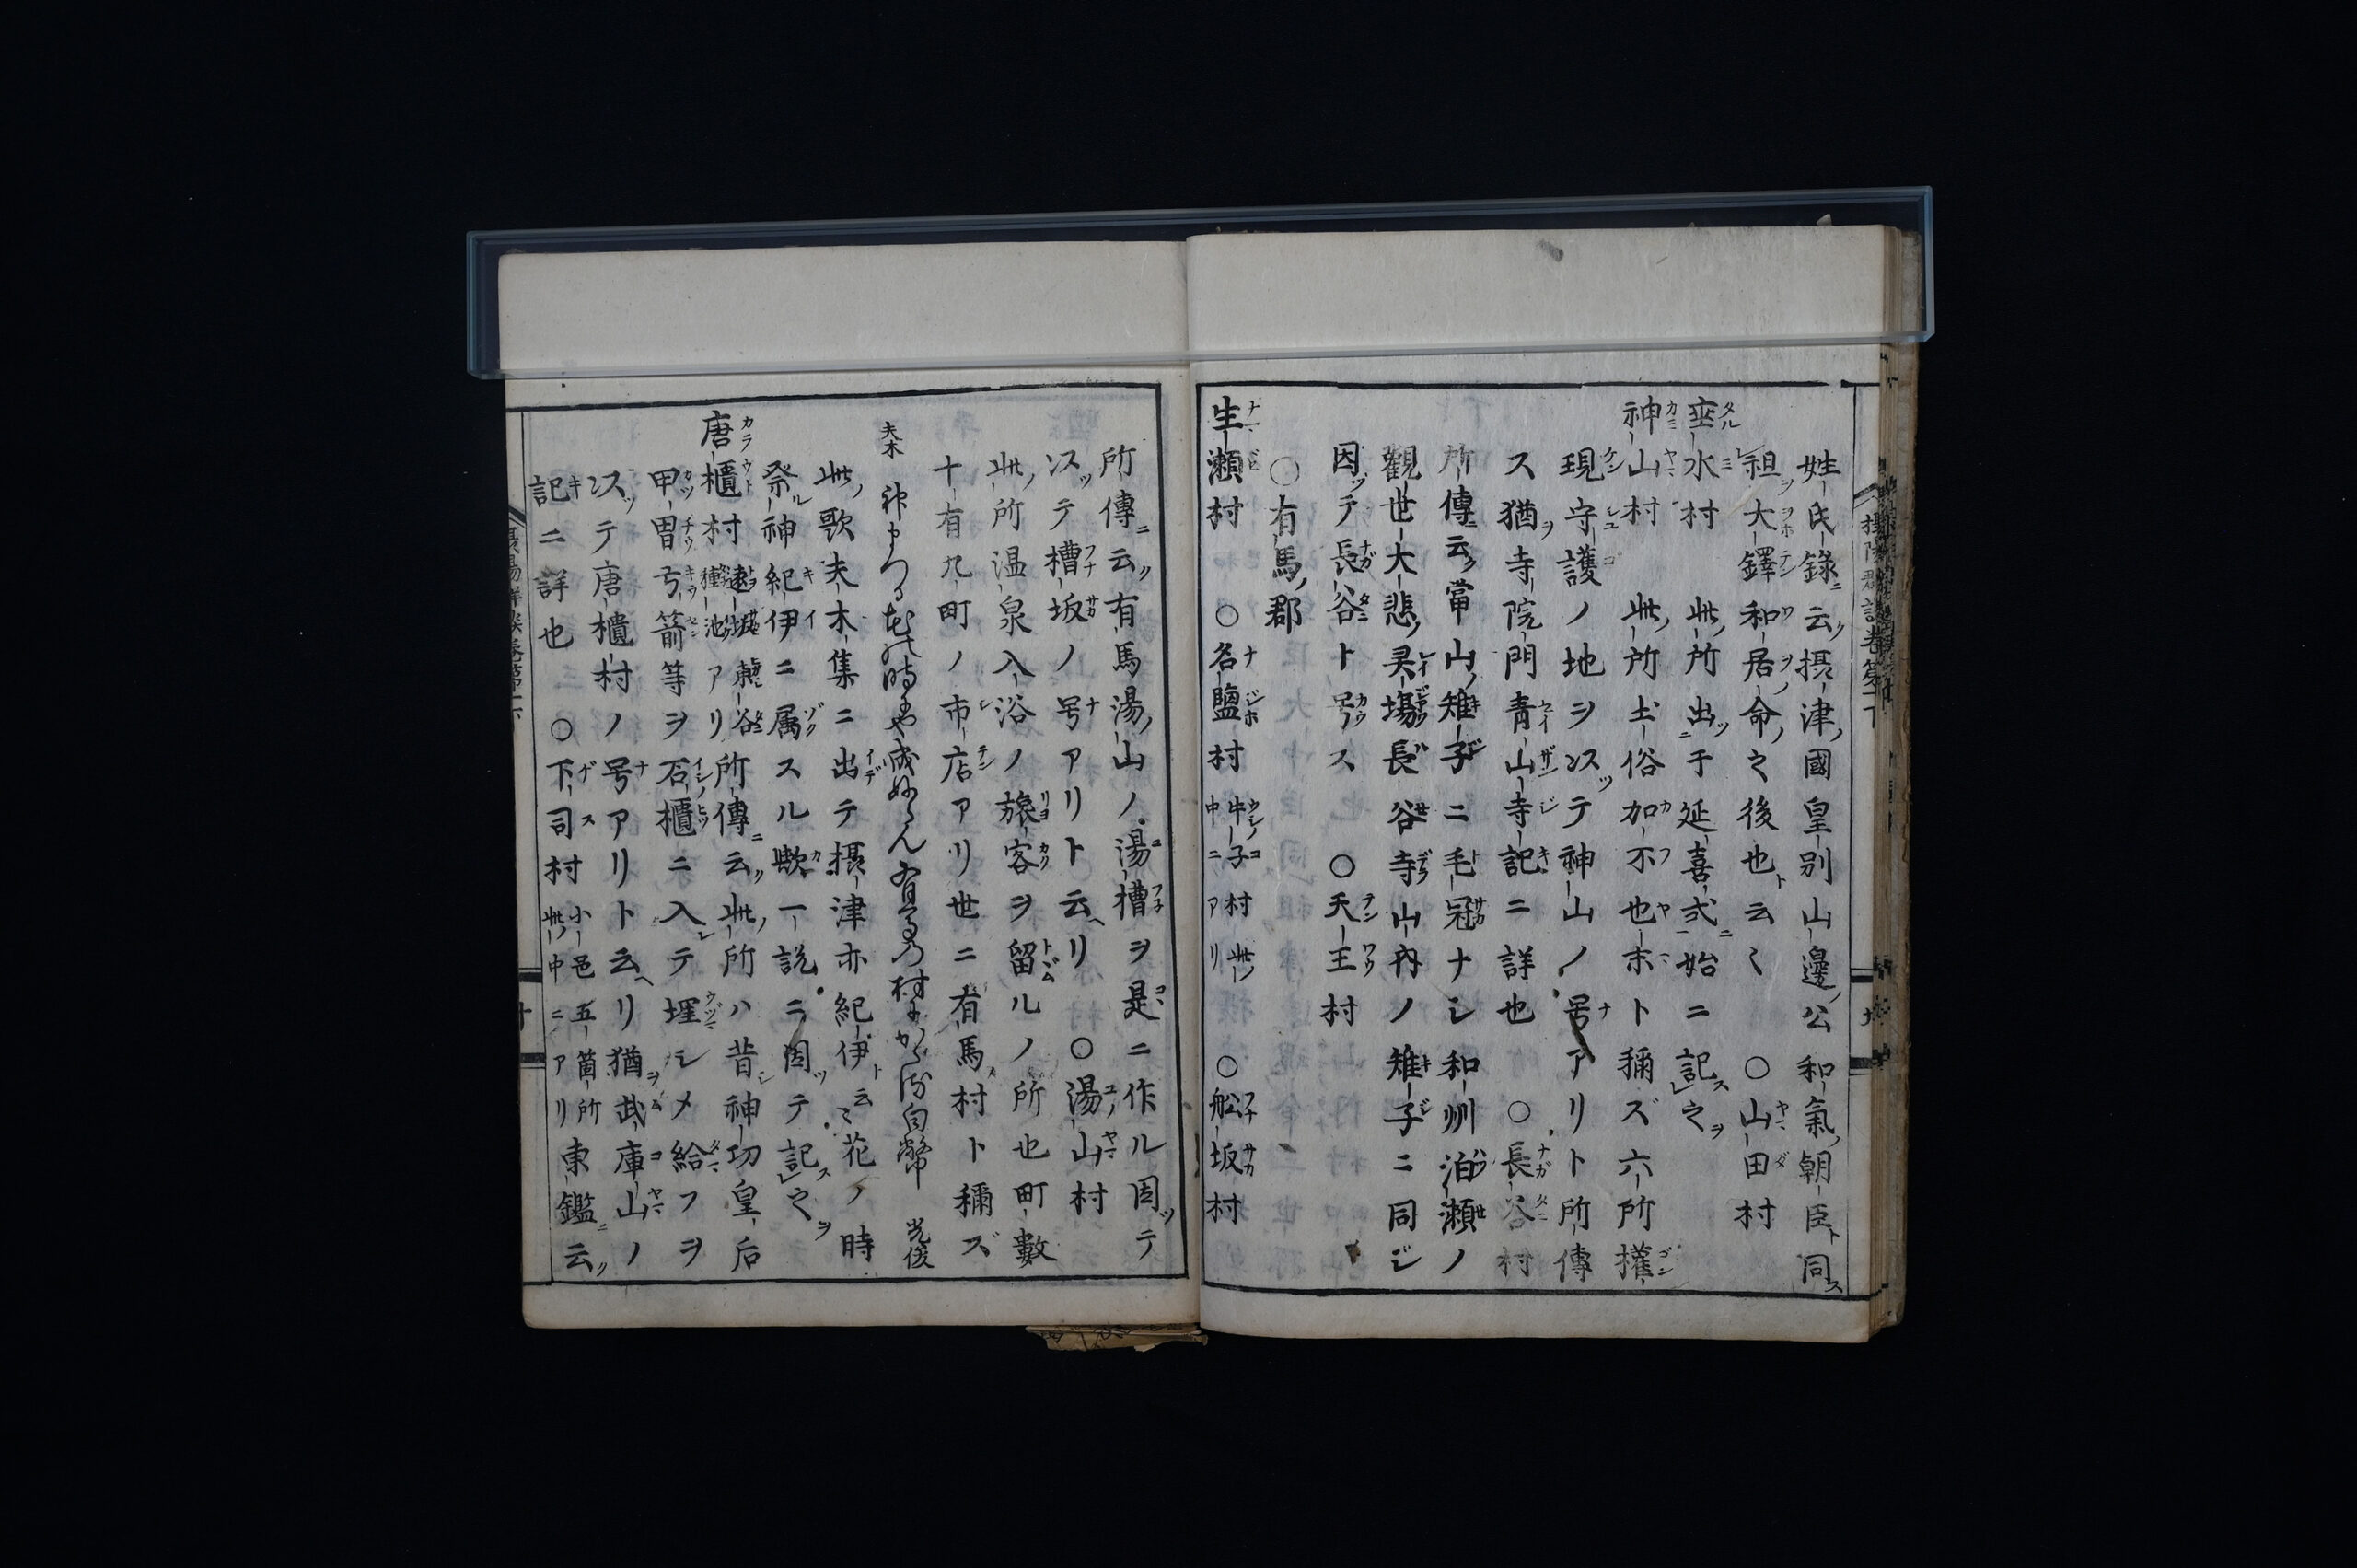 姓氏錄云摂津國皇別山邊公和氣朝臣同
祖大鐸和居命之後也云〻　○山田村
埀水村　此所出于延喜式始ニ記之
神山村　此所土俗加不也末ト稱ズ六所權
現守護ノ地ヲ以テ神山ノ号アリト所傳
ス猶寺院門青山寺記ニ詳也　○長谷村
所傳云當山雉子ニ毛冠ナシ和州泊瀬ノ
觀世大悲灵場長谷寺山内ノ雉子ニ同ジ
因テ長谷ト号ス　○天王村
○有馬郡
生瀬村　○名鹽村　牛子村此中ニアリ　○舩坂村
所傳云有馬湯山ノ湯槽ヲ是ニ作ル因テ
以テ槽坂ノ号アリト云リ　○湯山村
此所温泉入浴ノ旅客ヲ留ルノ所也町數
十有九町ノ市店アリ世ニ有馬村ト稱ズ
夫木　神まつる花の時にや成ぬらん有馬の村にかくる白幣　光俊
此歌夫木集ニ出テ摂津亦紀伊ト云〻花ノ時
祭神紀伊ニ属スル歟一説ニ因テ記之
唐櫃村　所傳云此所ハ昔神功皇后
甲冑弓箭等ヲ石櫃ニ入テ埋シメ給フヲ
以テ唐櫃村ノ号アリト云リ猶武庫山ノ
記ニ詳也　○下司村　小邑五箇所此中ニアリ　東鑑云